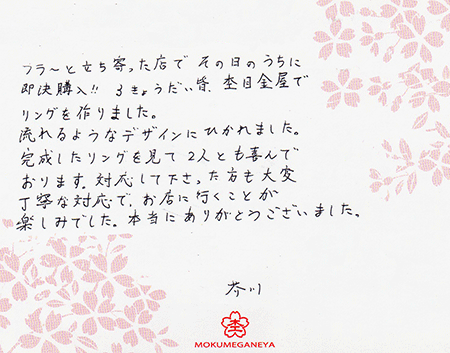 フラ〜と立ち寄った店で その日のうちに
即決購入!! 3きょうだい皆、杢目金屋で
リングを作りました。
流れるようなデザインにひかれました。
完成したリングを見て 2人とも喜んで
おります。対応して下さった方も大変
丁寧な対応で、お店に行くことが
楽しみでした。本当にありがとうございました。
芥川
杢
MOKUMEGANEYA